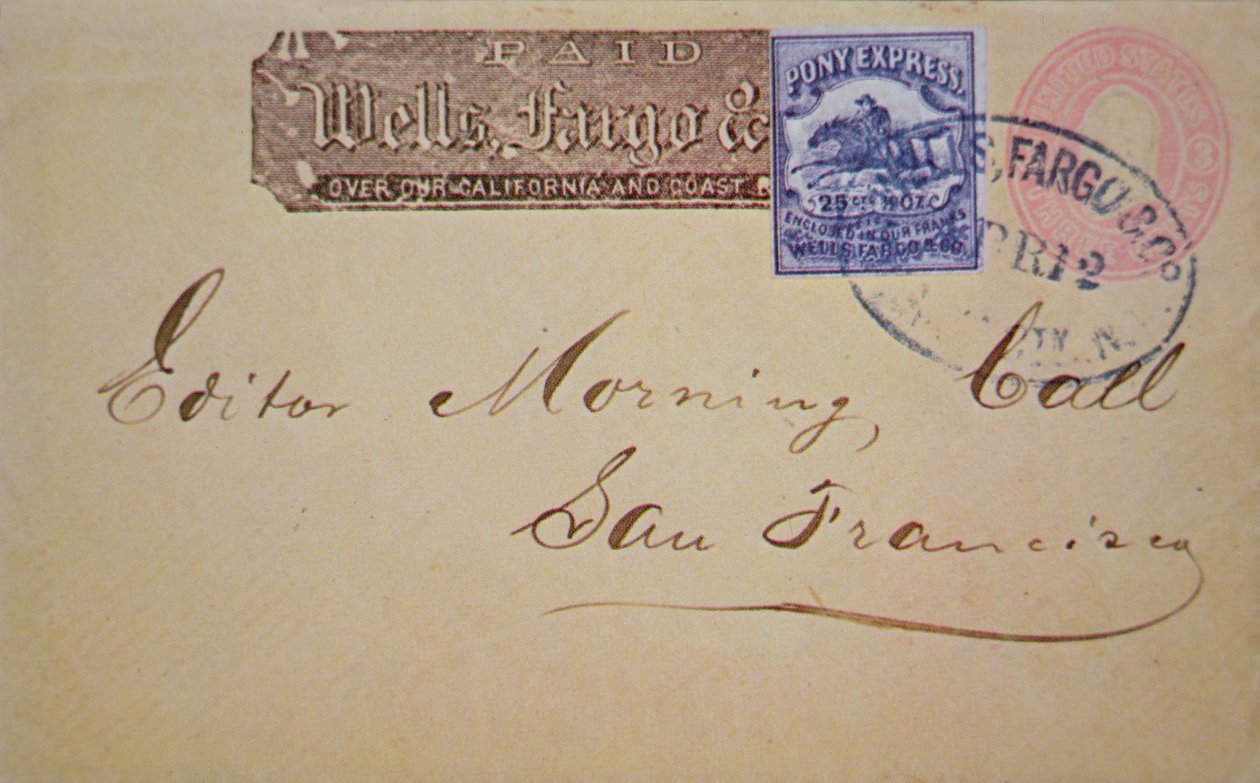 PAID
Wells, Fargo &
OVER OUR CALIFORNIA AND COAST
PONY EXPRESS.
25 CTS ½ OZ.
ENCLOSED IN OUR FRANKS
WELLS, FARGO & CO.
UNITED STATES
3
THREE
S, FARGO & Co
PR 12
N.
Editor Morning Call
San Francisco